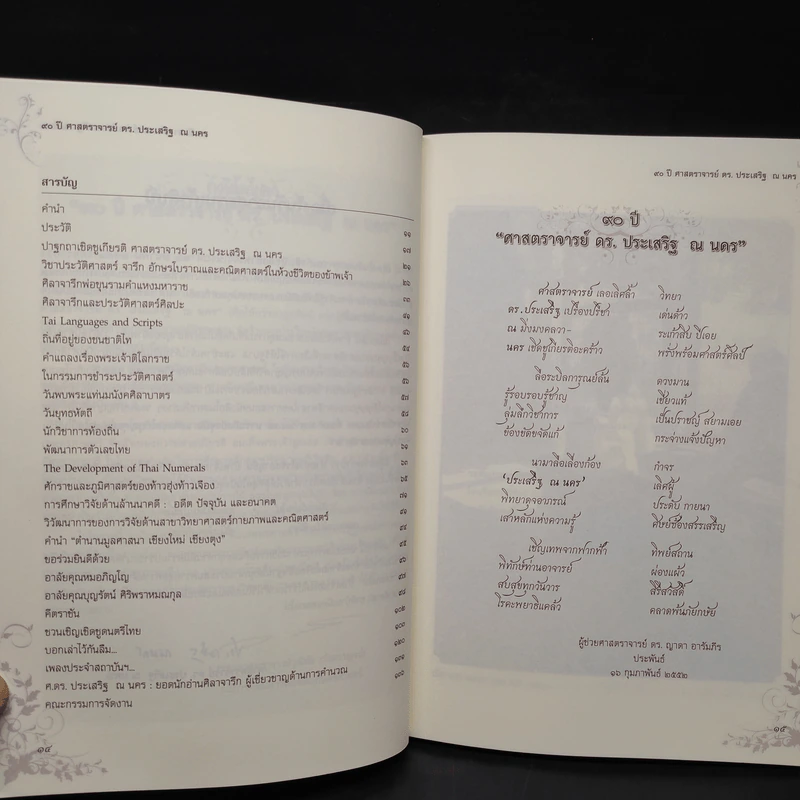 ๙๐ ปี ศาสตราจารย์ ดร. ประเสริฐ ณ นคร
สารบัญ
คำนำ
ประวัติ ๑๑
ปาฐกถาเชิดชูเกียรติ ศาสตราจารย์ ดร. ประเสริฐ ณ นคร ๑๗
วิชาประวัติศาสตร์ จารึก อักษรโบราณและคณิตศาสตร์ในห้วงชีวิตของข้าพเจ้า ๒๑
ศิลาจารึกพ่อขุนรามคำแหงมหาราช ๒๖
ศิลาจารึกและประวัติศาสตร์ศิลปะ
Tai Languages and Scripts
ถิ่นที่อยู่ของชนชาติไท
คำแถลงเรื่องพระเจ้าติโลกราช
ในกรรมการชำระประวัติศาสตร์
วันพบพระแท่นมนังคศิลาบาตร
วันยุทธหัตถี
นักวิชาการท้องถิ่น
พัฒนาการตัวเลขไทย
The Development of Thai Numerals
ศักราชและภูมิศาสตร์ของท้าวฮุ่งท้าวเจือง
การศึกษาวิจัยด้านล้านนาคดี : อดีต ปัจจุบัน และอนาคต
วิวัฒนาการของการวิจัยด้านสาขาวิทยาศาสตร์กายภาพและคณิตศาสตร์
คำนำ “ตำนานมูลศาสนา เชียงใหม่ เชียงตุง”
ขอร่วมยินดีด้วย
อาลัยคุณหมอภิญโญ
อาลัยคุณบุญรัตน์ ศิริพราหมณกุล
คีตราชัน
ชวนเชิญเชิดชูดนตรีไทย
บอกเล่าไว้กันลืม...
เพลงประจำสถาบันฯ...
ศ.ดร. ประเสริฐ ณ นคร : ยอดนักอ่านศิลาจารึก ผู้เชี่ยวชาญด้านการคำนวณ
คณะกรรมการจัดงาน
๑๔
๙๐ ปี ศาสตราจารย์ ดร. ประเสริฐ ณ นคร
๙๐ ปี
“ศาสตราจารย์ ดร. ประเสริฐ ณ นคร”
ศาสตราจารย์ เลอเลิศล้ำ วิทยา
ดร.ประเสริฐ เปรื่องปรีชา เด่นด้าว
ณ มิ่งมงคลวา- ระเก้าสิบ ปีเอย
นคร เชิดชูเกียรติอะคร้าว พรั่งพร้อมศาสตร์ศิลป์
ลือระบิลการุณย์ล้น ดวงมาน
รู้รอบรอบรู้ชาญ เชี่ยวแท้
ลุ่มลึกวิชาการ เป็นปราชญ์ สยามเอย
ข้องขัดขจัดแก้ กระจ่างแจ้งปัญหา
นามาลือเลื่องก้อง กำจร
‘ประเสริฐ ณ นคร’ เลิศผู้
พิทยาดุจอาภรณ์ ประดับ กายนา
เสาหลักแห่งความรู้ ศิษย์ซ้องสรรเสริญ
เชิญเทพจากฟากฟ้า ทิพย์สถาน
พิทักษ์ท่านอาจารย์ ผ่องแผ้ว
สบสุขทุกวันวาร สิริสวัสดิ์
โรคะพยาธิแคล้ว คลาดพ้นภัยกษัย
ผู้ช่วยศาสตราจารย์ ดร. ญาดา อารัมภีร
ประพันธ์
๑๖ กุมภาพันธ์ ๒๕๕๒
๑๕